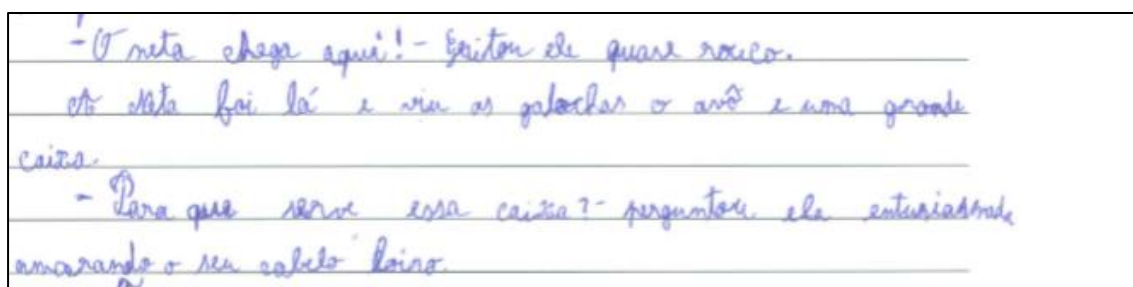 - Ó neta chega aqui! - Gritou ele quase rouco.
A Neta foi lá e viu as galochas o avô e uma grande
caixa.
- Para que serve essa caixa? - perguntou ela entusiasmada
amarando o seu cabelo loiro.